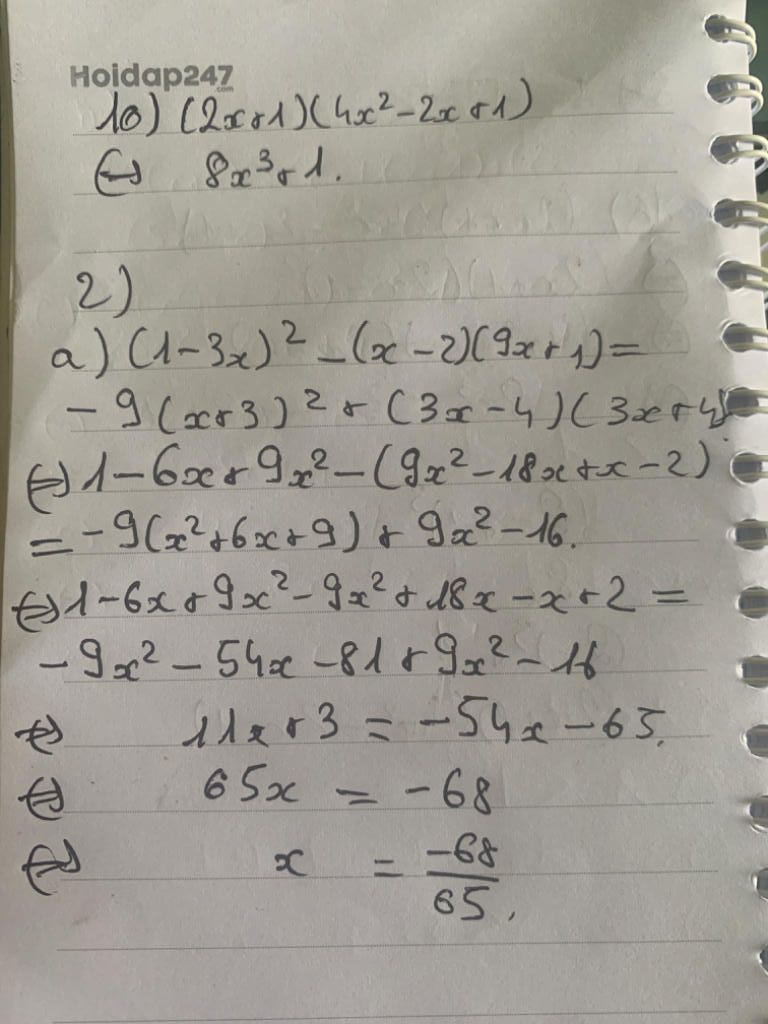 Hoidap247
.com
10) (2x+1)(4x²-2x+1)
⇔ 8x³+1.
2)
a) (1-3x)² - (x-2)(9x+1) =
- 9(x+3)² + (3x-4)(3x+4)
⇔ 1-6x+9x²-(9x²-18x+x-2)
= -9(x²+6x+9) + 9x²-16.
⇔ 1-6x+9x²-9x²+18x-x+2 =
-9x²-54x-81+9x²-16
⇔ 11x+3 = -54x-65.
⇔ 65x = -68
⇔ x = -68/65.